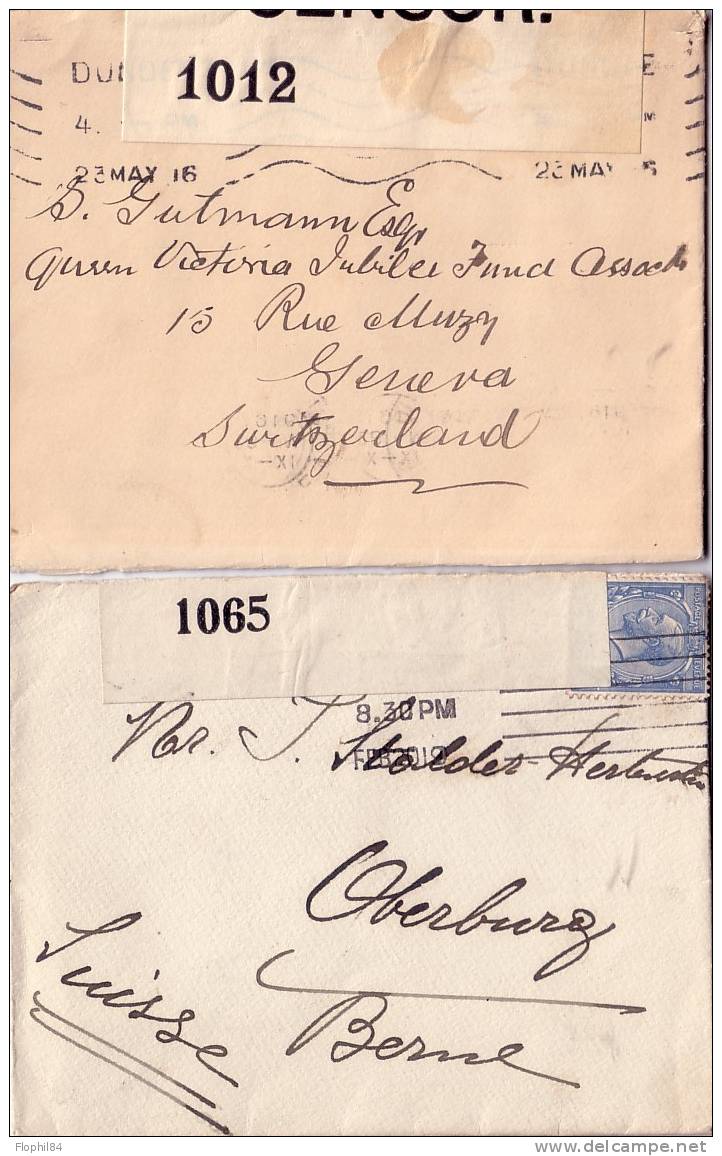 CENSOR.
1012
DU
E
4.
M
23 MAY 16
23 MAY 16
S. Gutmann Esqr
Queen Victoria Jubilee Fund Assoctn
15 Rue Muzy
Geneva
Switzerland
1065
POSTAGE
REVENUE
8.30 PM
FEB 20 19
Mr. J. Stalder-
Oberburg
Berne
Suisse
Flophil84
delcampe.net